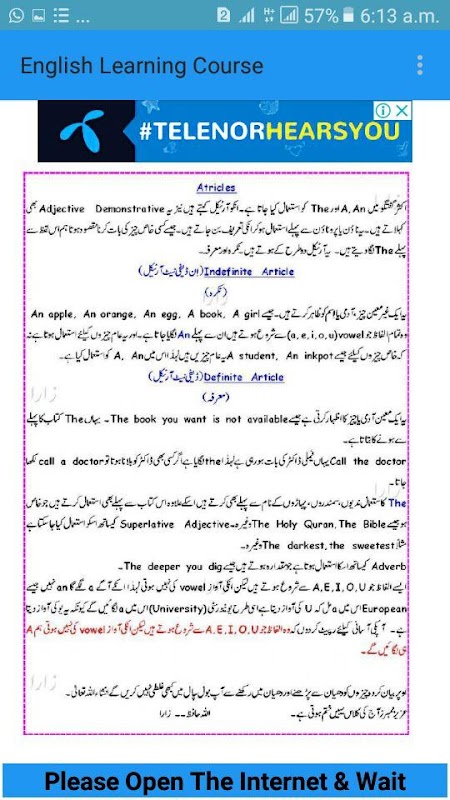 ... 2 H+ 57% 6:13 a.m.
English Learning Course
#TELENORHEARSYOU
Atricles
اکثر گفتگو میں A, An اور The کو استعمال کیا جاتا ہے۔ انکو آرٹیکل کہتے ہیں نیز یہ Adjective Demonstrative بھی
پہلے The لگا دیتے ہیں۔ یہ آرٹیکل دو طرح کے ہوتے ہیں۔ نکرہ اور معرفہ۔
Indefinite Article (ان ڈیفی نیٹ آرٹیکل)
(نکرہ)
یہ ایک غیر معین چیز، آدمی یا اسم کو ظاہر کرتے ہیں۔ جیسے An apple, An orange, An egg, A book, A girl
وہ تمام الفاظ جو vowel (a, e, i, o, u) سے شروع ہوتے ہیں ان سے پہلے An لگایا جاتا ہے۔ اور یہ عام چیزوں کیلئے استعمال ہوتا ہے نہ
کہ خاص چیزوں کیلئے جیسے A student, An inkpot یہ عام چیزیں ہیں لہذا اس میں A, An کو استعمال کیا ہے۔
Definite Article (ڈیفی نیٹ آرٹیکل)
(معرفہ)
یہ ایک معین آدمی یا چیز کا اظہار کرتی ہے جیسے The book you want is not available۔ یہاں The کتاب کا پہلے
سے ہونے کا بتاتا ہے۔
Call the doctor یہاں فیملی ڈاکٹر کی بات ہو رہی ہے لہذا the لگایا ہے اگر کسی بھی ڈاکٹر کو بلانا ہوتا تو call a doctor لکھا
جاتا۔
The کا استعمال ندیوں، سمندروں، پہاڑوں کے نام سے پہلے بھی کرتے ہیں اسکے علاوہ اس کتاب سے پہلے بھی استعمال کرتے ہیں جو خاص
ہو جیسے The Holy Quran, The Bible وغیرہ۔ Superlative Adjective کیساتھ اسکو استعمال کیا جا سکتا ہے
مثلاً The darkest, the sweetest وغیرہ۔
Adverb کیساتھ اسکا استعمال ہوتا ہے جو مقدار وہ ہوتے ہیں جیسے The deeper you dig۔
ایسے الفاظ جو A, E, I, O, U سے شروع ہوتے ہیں لیکن انکی آواز vowel کی نہیں ہوتی لہذا انکے آگے a لگے گا an نہیں جیسے
European اس میں a کیونکہ U کی آواز دیتا ہے اسی طرح یونیورسٹی (University) اس میں a لگائیں گے کیونکہ یہ یو کی آواز دیتا
ہے۔ آپکی آسانی کیلئے رپیٹ کر دوں کہ وہ الفاظ جو A, E, I, O, U سے شروع ہوتے ہیں لیکن انکی آواز vowel کی نہیں ہوتی ہم A
ہی لگائیں گے۔
اوپر بیان کردہ چیزوں کو دھیان سے پڑھنے اور دھیان میں رکھنے سے آپ بول چال میں کبھی غلطی نہیں کریں گے انشاءاللہ تعالیٰ۔
عزیز ممبرز آج کی کلاس یہیں ختم ہوتی ہے۔ اللہ حافظ۔۔ زارا
Please Open The Internet & Wait